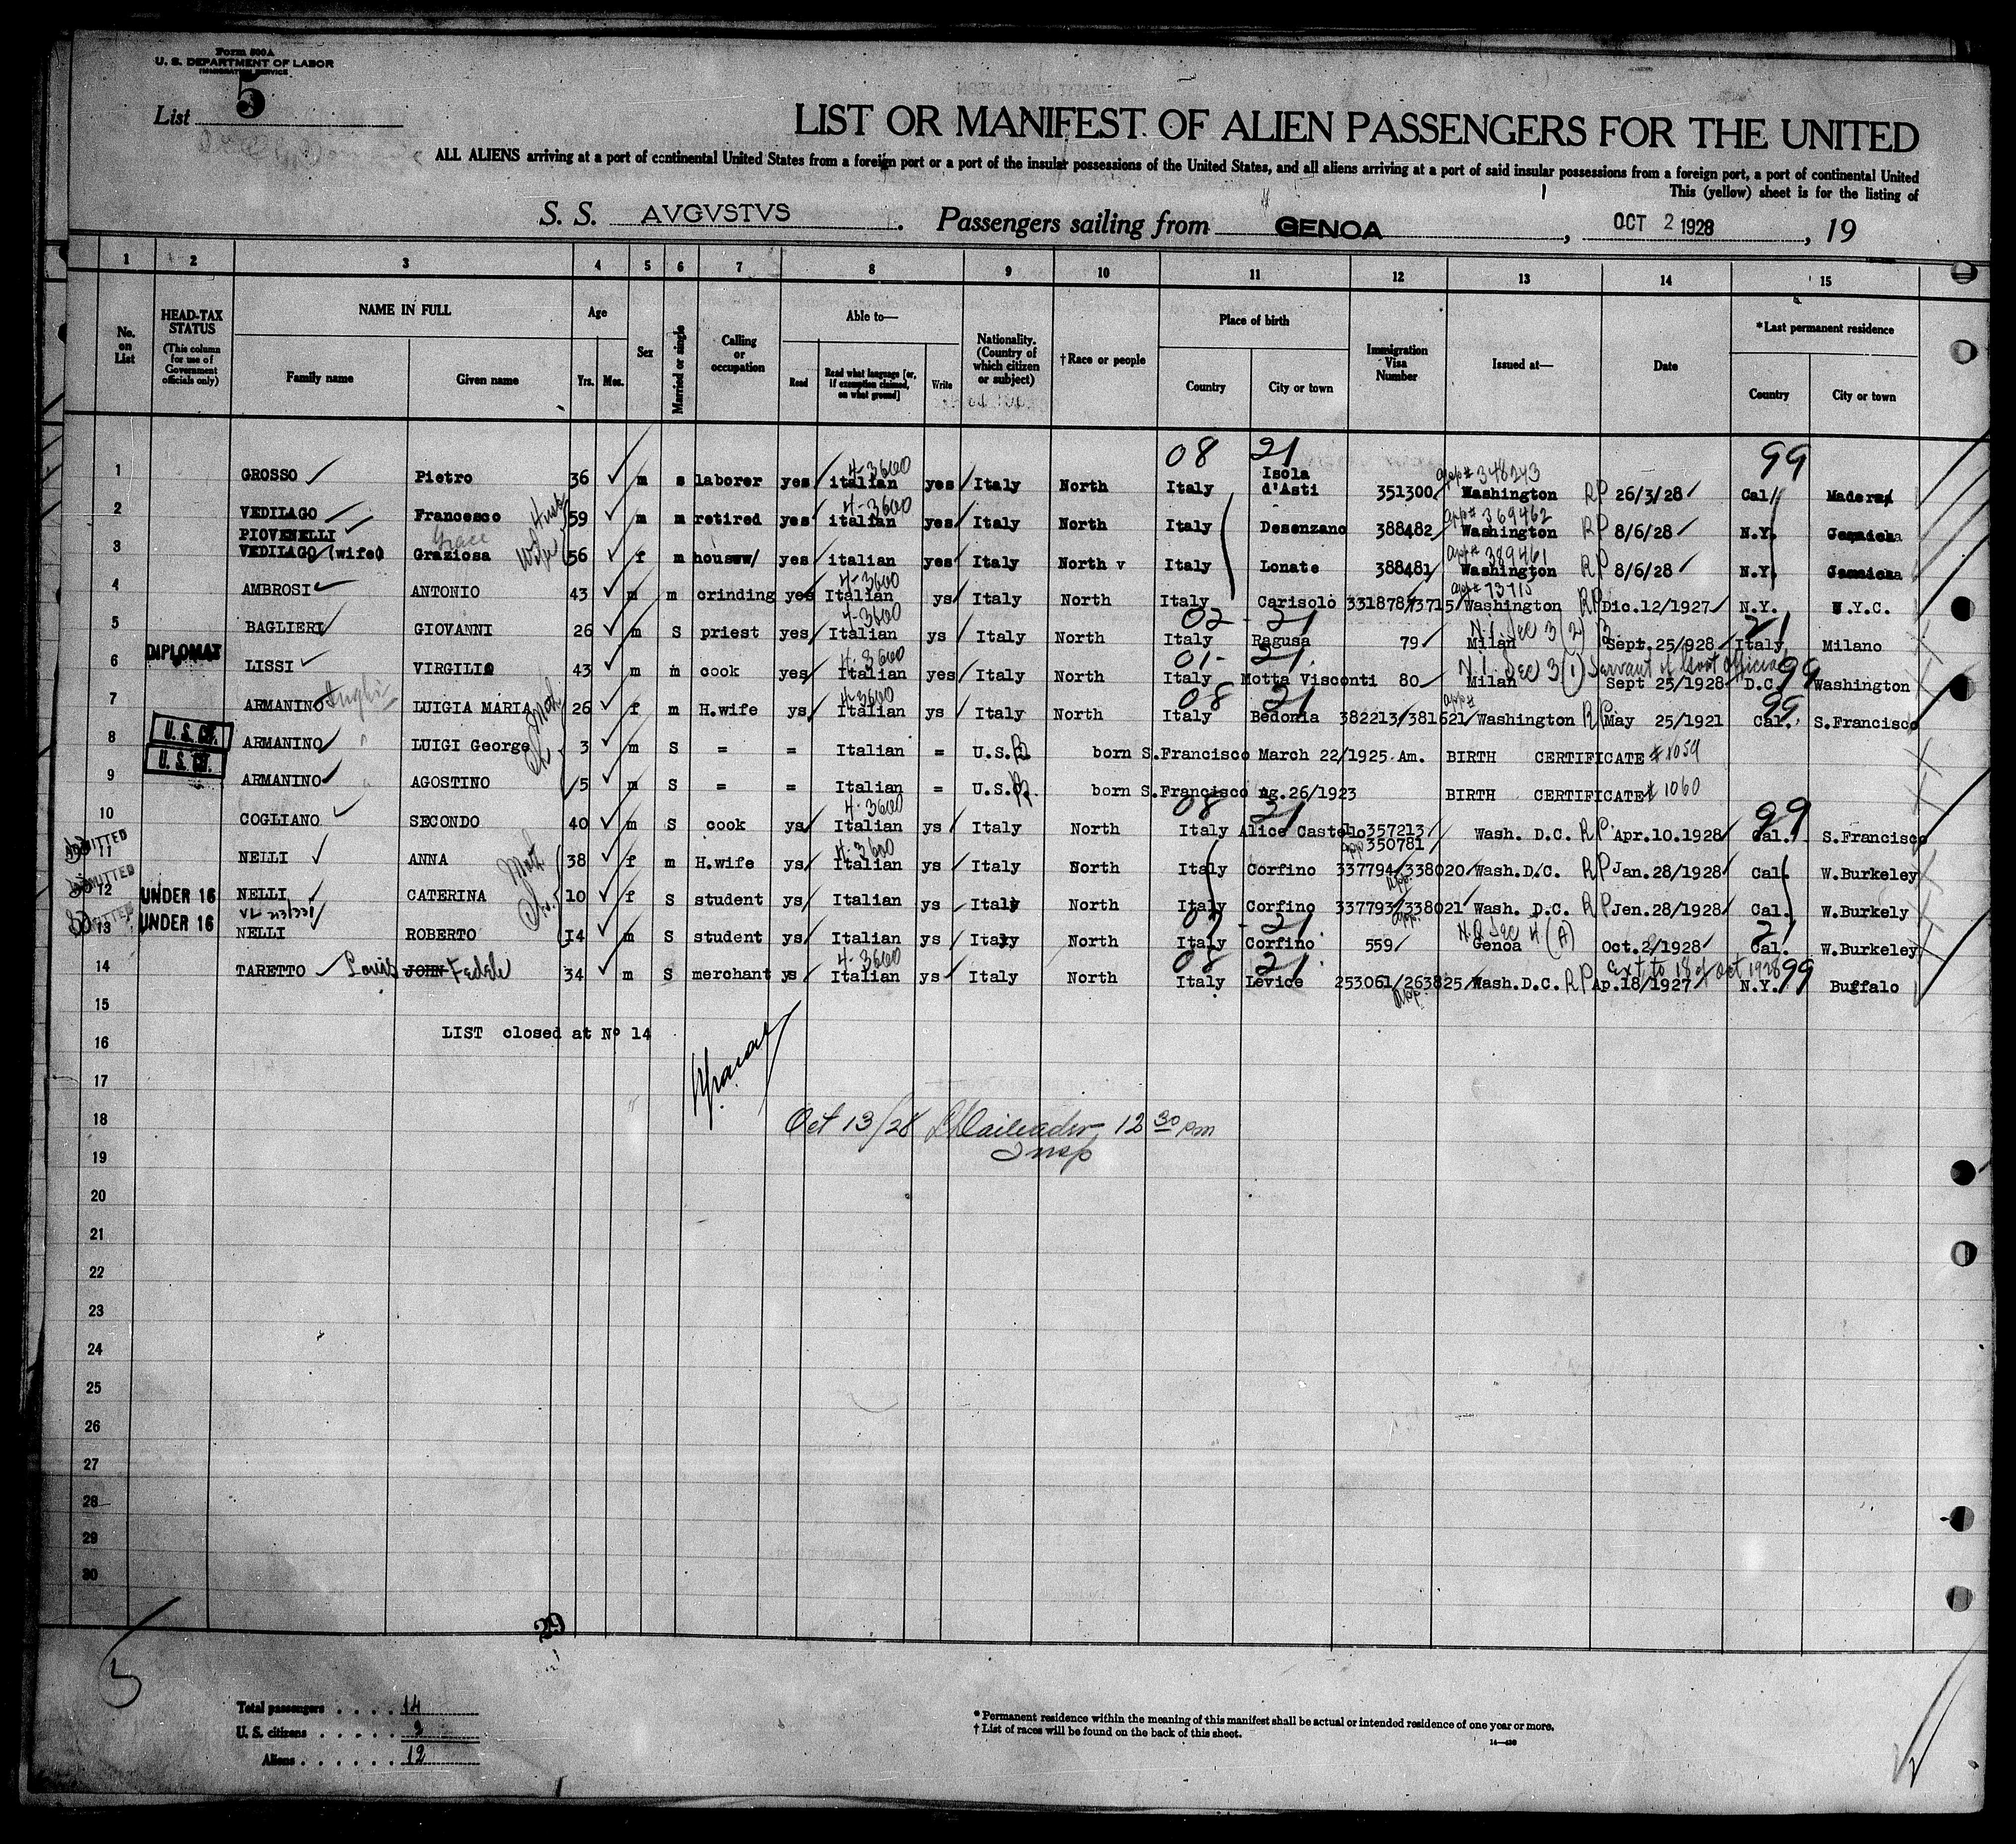 Form 500A
U. S. DEPARTMENT OF LABOR
IMMIGRATION SERVICE
List 5
LIST OR MANIFEST OF ALIEN PASSENGERS FOR THE UNITED
ALL ALIENS arriving at a port of continental United States from a foreign port or a port of the insular possessions of the United States, and all aliens arriving at a port of said insular possessions from a foreign port, a port of continental United
This (yellow) sheet is for the listing of
S. S. AVGVSTVS. Passengers sailing from GENOA, OCT 2 1928, 19
1 2 3 4 5 6 7 8 9 10 11 12 13 14 15
No. on List
HEAD-TAX STATUS (This column for use of Government officials only)
NAME IN FULL Family name Given name
Age Yrs. Mos.
Sex
Married or single
Calling or occupation
Able to— Read Read what language [or, if exemption claimed, on what ground] Write
Nationality. (Country of which citizen or subject)
†Race or people
Place of birth Country City or town
Immigration Visa Number
Issued at—
Date
*Last permanent residence Country City or town
08 21 99
1 GROSSO Pietro 36 m s laborer yes italian 4-3600 yes Italy North Italy Isola d'Asti 351300 app# 348243 Washington RP 26/3/28 Cal Madera
2 VEDILAGO Francesco Husb 59 m m retired yes italian 4-3600 yes Italy North Italy Desenzano 388482 app# 369462 Washington RP 8/6/28 N.Y. Jamaica
PIOVENELLI Grace
3 VEDILAGO (wife) Graziosa Wife 56 f m housww/ yes italian yes Italy North v Italy Lonate 388481 app# 389461 Washington RP 8/6/28 N.Y. Jamaica
4 AMBROSI ANTONIO 43 m m crinding yes Italian 4-3600 ys Italy North Italy Carisolo 331878/73715 app# 73715 Washington RP Dic.12/1927 N.Y. N.Y.C.
02 - 21 21
5 BAGLIERI GIOVANNI 26 m S priest yes Italian 4-3600 ys Italy North Italy Ragusa 79 Milan N.I. Sec 3 (2) Sept.25/928 Italy Milano
01 - 21 99
6 DIPLOMAT LISSI VIRGILIO 43 m m cook yes Italian 4-3600 yes Italy North Italy Motta Visconti 80 Milan N.I. Sec 3 (1) Servant of Govt official Sept 25/1928 D.C. Washington
08 21 99
7 ARMANINO LUIGIA MARIA 26 f m H.wife ys Italian 4-3600 ys Italy North Italy Bedonia 382213/381621 app# Washington RP May 25/1921 Cal. S.Francisco
8 U.S. CIT. ARMANINO LUIGI George 3 m S = = Italian = U.S.A. born S.Francisco March 22/1925 Am. BIRTH CERTIFICATE # 1059
9 U.S. CIT. ARMANINO AGOSTINO 5 m S = = Italian = U.S.A. born S.Francisco Ag.26/1923 BIRTH CERTIFICATE # 1060
08 21 99
10 COGLIANO SECONDO 40 m S cook ys Italian 4-3600 ys Italy North Italy Alice Castello 357213 app 350781 Wash. D.C. RP Apr.10.1928 Cal. S.Francisco
11 ADMITTED NELLI ANNA 38 f m H.wife ys Italian 4-3600 ys Italy North Italy Corfino 337794/338020 app. Wash.D.C. RP Jan.28/1928 Cal. W.Burkeley
12 ADMITTED UNDER 16 NELLI CATERINA 10 f S student ys Italian ys Italy North Italy Corfino 337793/338021 app. Wash. D.C. RP Jen.28/1928 Cal. W.Burkely
07 - 21 21
13 ADMITTED UNDER 16 NELLI ROBERTO 14 m S student ys Italian ys Italy North Italy Corfino 559 Genoa N.Q Sec 4 (A) Oct.2/1928 Cal. W.Burkeley
08 21 99
14 TARETTO Louis JOHN Fedele 34 m S merchant ys Italian 4-3600 ys Italy North Italy Levice 253061/263825 app. Wash.D.C. RP Ap.18/1927 Ext to 18 of Oct 1928 N.Y. Buffalo
15
LIST closed at Nº 14
16
17
18
Oct 13/28 12 30 pm
Insp
19
20
21
22
23
24
25
26
27
28
29
30
29
5
Total passengers . . . . 14
U. S. citizens . . . . . 2
Aliens . . . . . . 12
* Permanent residence within the meaning of this manifest shall be actual or intended residence of one year or more.
† List of races will be found on the back of this sheet.
14—430